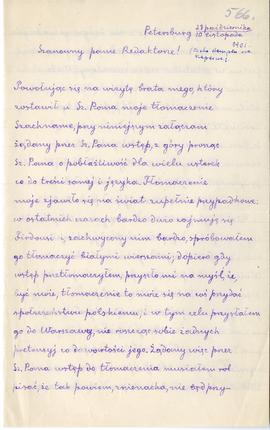 566.
Petersburg 28 października
10 listopada
1901.
Szanowny panie Redaktorze!
Powołując się na wizytę brata mego, który
zostawił u Sz. Pana moje tłomaczenie
Szachname, przy niniejszym załączam
żądany przez Sz. Pana wstęp, z góry prosząc
Sz. Pana o pobłażliwość dla wielu usterek
co do treści samej i języka. Tłomaczenie
moje zjawiło się na świat zupełnie przypadkowo:
w ostatnich czasach bardzo dużo zajmuję się
Firdusi i, zachwycony nim bardzo, spróbowałem
go tłomaczyć białymi wierszami; dopiero gdy
wstęp przetłomaczyłem, przyszło mi na myśl, że,
być może, tłomaczenie to może się na coś przydać
społeczeństwu polskiemu, i w tym celu przysłałem
go do Warszawy, nie roszcząc sobie żadnych
pretensyj co do wartości jego. Żądany więc przez
Sz. Pana wstęp do tłomaczenia musiałem na-
pisać, że tak powiem, znienacka, nie będąc przy-